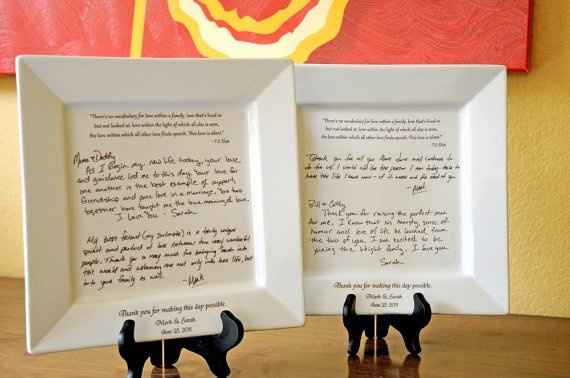 "There's no vocabulary for love within a family, love that's lived in
but not looked at, love within the light of which all else is seen,
the love within which all other love finds speech. This love is silent."
- T.S. Eliot
Mama & Daddy,
As I begin my new life today, your love
and guidance led me to this day. Your love for
one another is the best example of support,
friendship and pure love in a marriage. You two
together have taught me the true meaning of love.
I Love You - Sarah
My best friend (my soulmate) is a truly unique
spirit and product of two
people. Thank you so very much for bringing Sarah into
the world and welcoming me not only into her life, but
into your family as well.
- Mark
Thank you for making this day possible.
Mark & Sarah
June 25, 2011
"There's no vocabulary for love within a family, love that's lived in
but not looked at, love within the light of which all else is seen,
the love within which all other love finds speech. This love is silent."
- T.S. Eliot
Thank you for all you have done and continue to
do for us. I would not be the person I am today
have the life I have now - if it were not for both of you
- Mark
Bill & Cathy,
Thank you for raising the perfect man
for me. I know that his honesty, sense of
humor and love of life he learned from
the two of you. I am excited to be
joining the family. I love you.
Sarah
Thank you for making this day possible.
Mark & Sarah
June 25, 2011